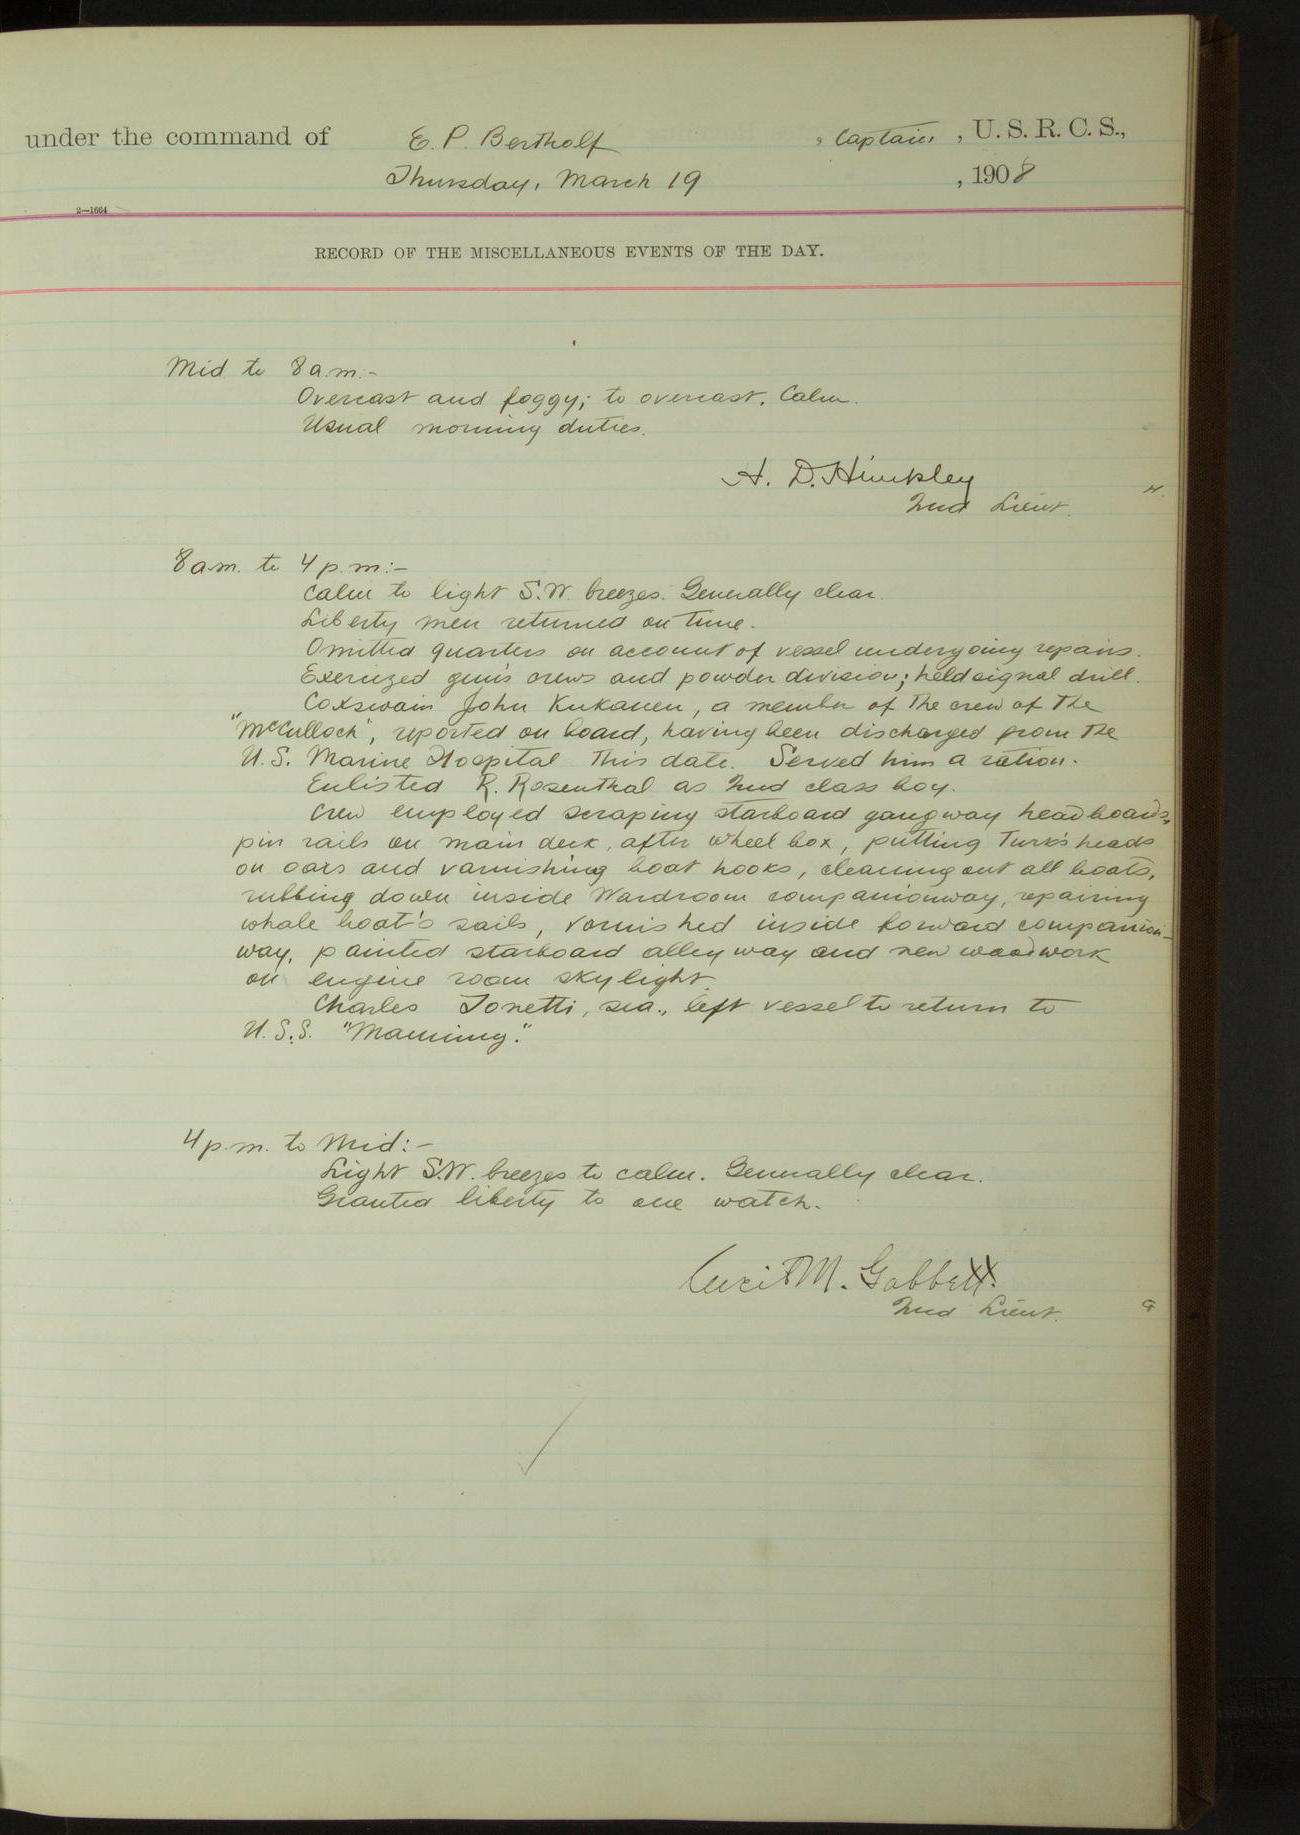 under the command of E. P. Bertholf, Captain, U. S. R. C. S.,
Thursday, March 19, 1908
2—1664
RECORD OF THE MISCELLANEOUS EVENTS OF THE DAY.
Mid to 8 a.m.-
Overcast and foggy; to overcast. Calm.
Usual morning duties.
H. D. Hinckley
2nd Lieut.
H.
8 a.m. to 4 p.m.:-
Calm to light S.W. breezes. Generally clear.
Liberty men returned on time.
Omitted quarters on account of vessel undergoing repairs.
Exercized gun's crews and powder division; held signal drill.
Coxswain John Kukanen, a member of the crew of the
"McCulloch", reported on board, having been discharged from the
U.S. Marine Hospital this date. Served him a ration.
Enlisted R. Rosenthal as 2nd class boy.
Crew employed scraping starboard gangway headboards,
pin rails on main deck, after wheel box, putting Turk's heads
on oars and varnishing boat hooks, cleaning out all boats,
rubbing down inside Wardroom companionway, repairing
whale boat's sails, varnished inside forward companion-
way, painted starboard alleyway and new woodwork
on engine room skylight.
Charles Tonetti, sea., left vessel to return to
U.S.S. "Manning."
4 p.m. to Mid:-
Light S.W. breezes to calm. Generally clear.
Granted liberty to one watch.
M. Gabbett.
2nd Lieut.
G